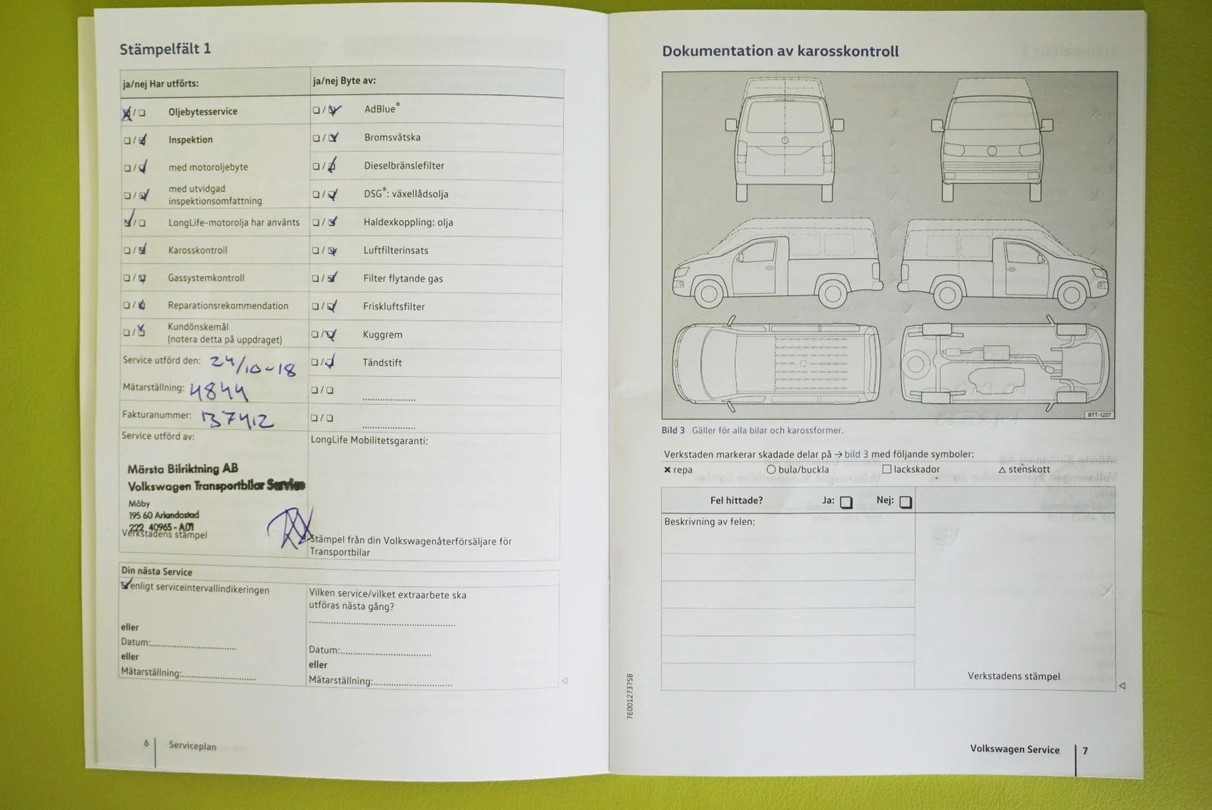 Stämpelfält 1
ja/nej Har utförts:
ja/nej Byte av:
Oljebytesservice
AdBlue®
Inspektion
Bromsvätska
med motoroljebyte
Dieselbränslefilter
med utvidgad
inspektionsomfattning
DSG®: växellådsolja
LongLife-motorolja har använts
Haldexkoppling: olja
Karosskontroll
Luftfilterinsats
Gassystemkontroll
Filter flytande gas
Reparationsrekommendation
Friskluftsfilter
Kundönskemål
(notera detta på uppdraget)
Kuggrem
Service utförd den: 24/10-18
Tändstift
Mätarställning: 4844
Fakturanummer: 137412
Service utförd av:
LongLife Mobilitetsgaranti:
Märsta Bilriktning AB
Volkswagen Transportbilar Service
Måby
195 60 Arlandastad
222 40965 - A01
Verkstadens stämpel
Stämpel från din Volkswagenåterförsäljare för
Transportbilar
Din nästa Service
enligt serviceintervallindikeringen
Vilken service/vilket extraarbete ska
utföras nästa gång?
eller
Datum:
eller
Mätarställning:
Datum:
eller
Mätarställning:
6 Serviceplan
Dokumentation av karosskontroll
BTT-1227
Bild 3 Gäller för alla bilar och karossformer.
Verkstaden markerar skadade delar på → bild 3 med följande symboler:
× repa ○ bula/buckla □ lackskador △ stenskott
Fel hittade? Ja: □ Nej: □
Beskrivning av felen:
Verkstadens stämpel
7E0012737SB
Volkswagen Service 7